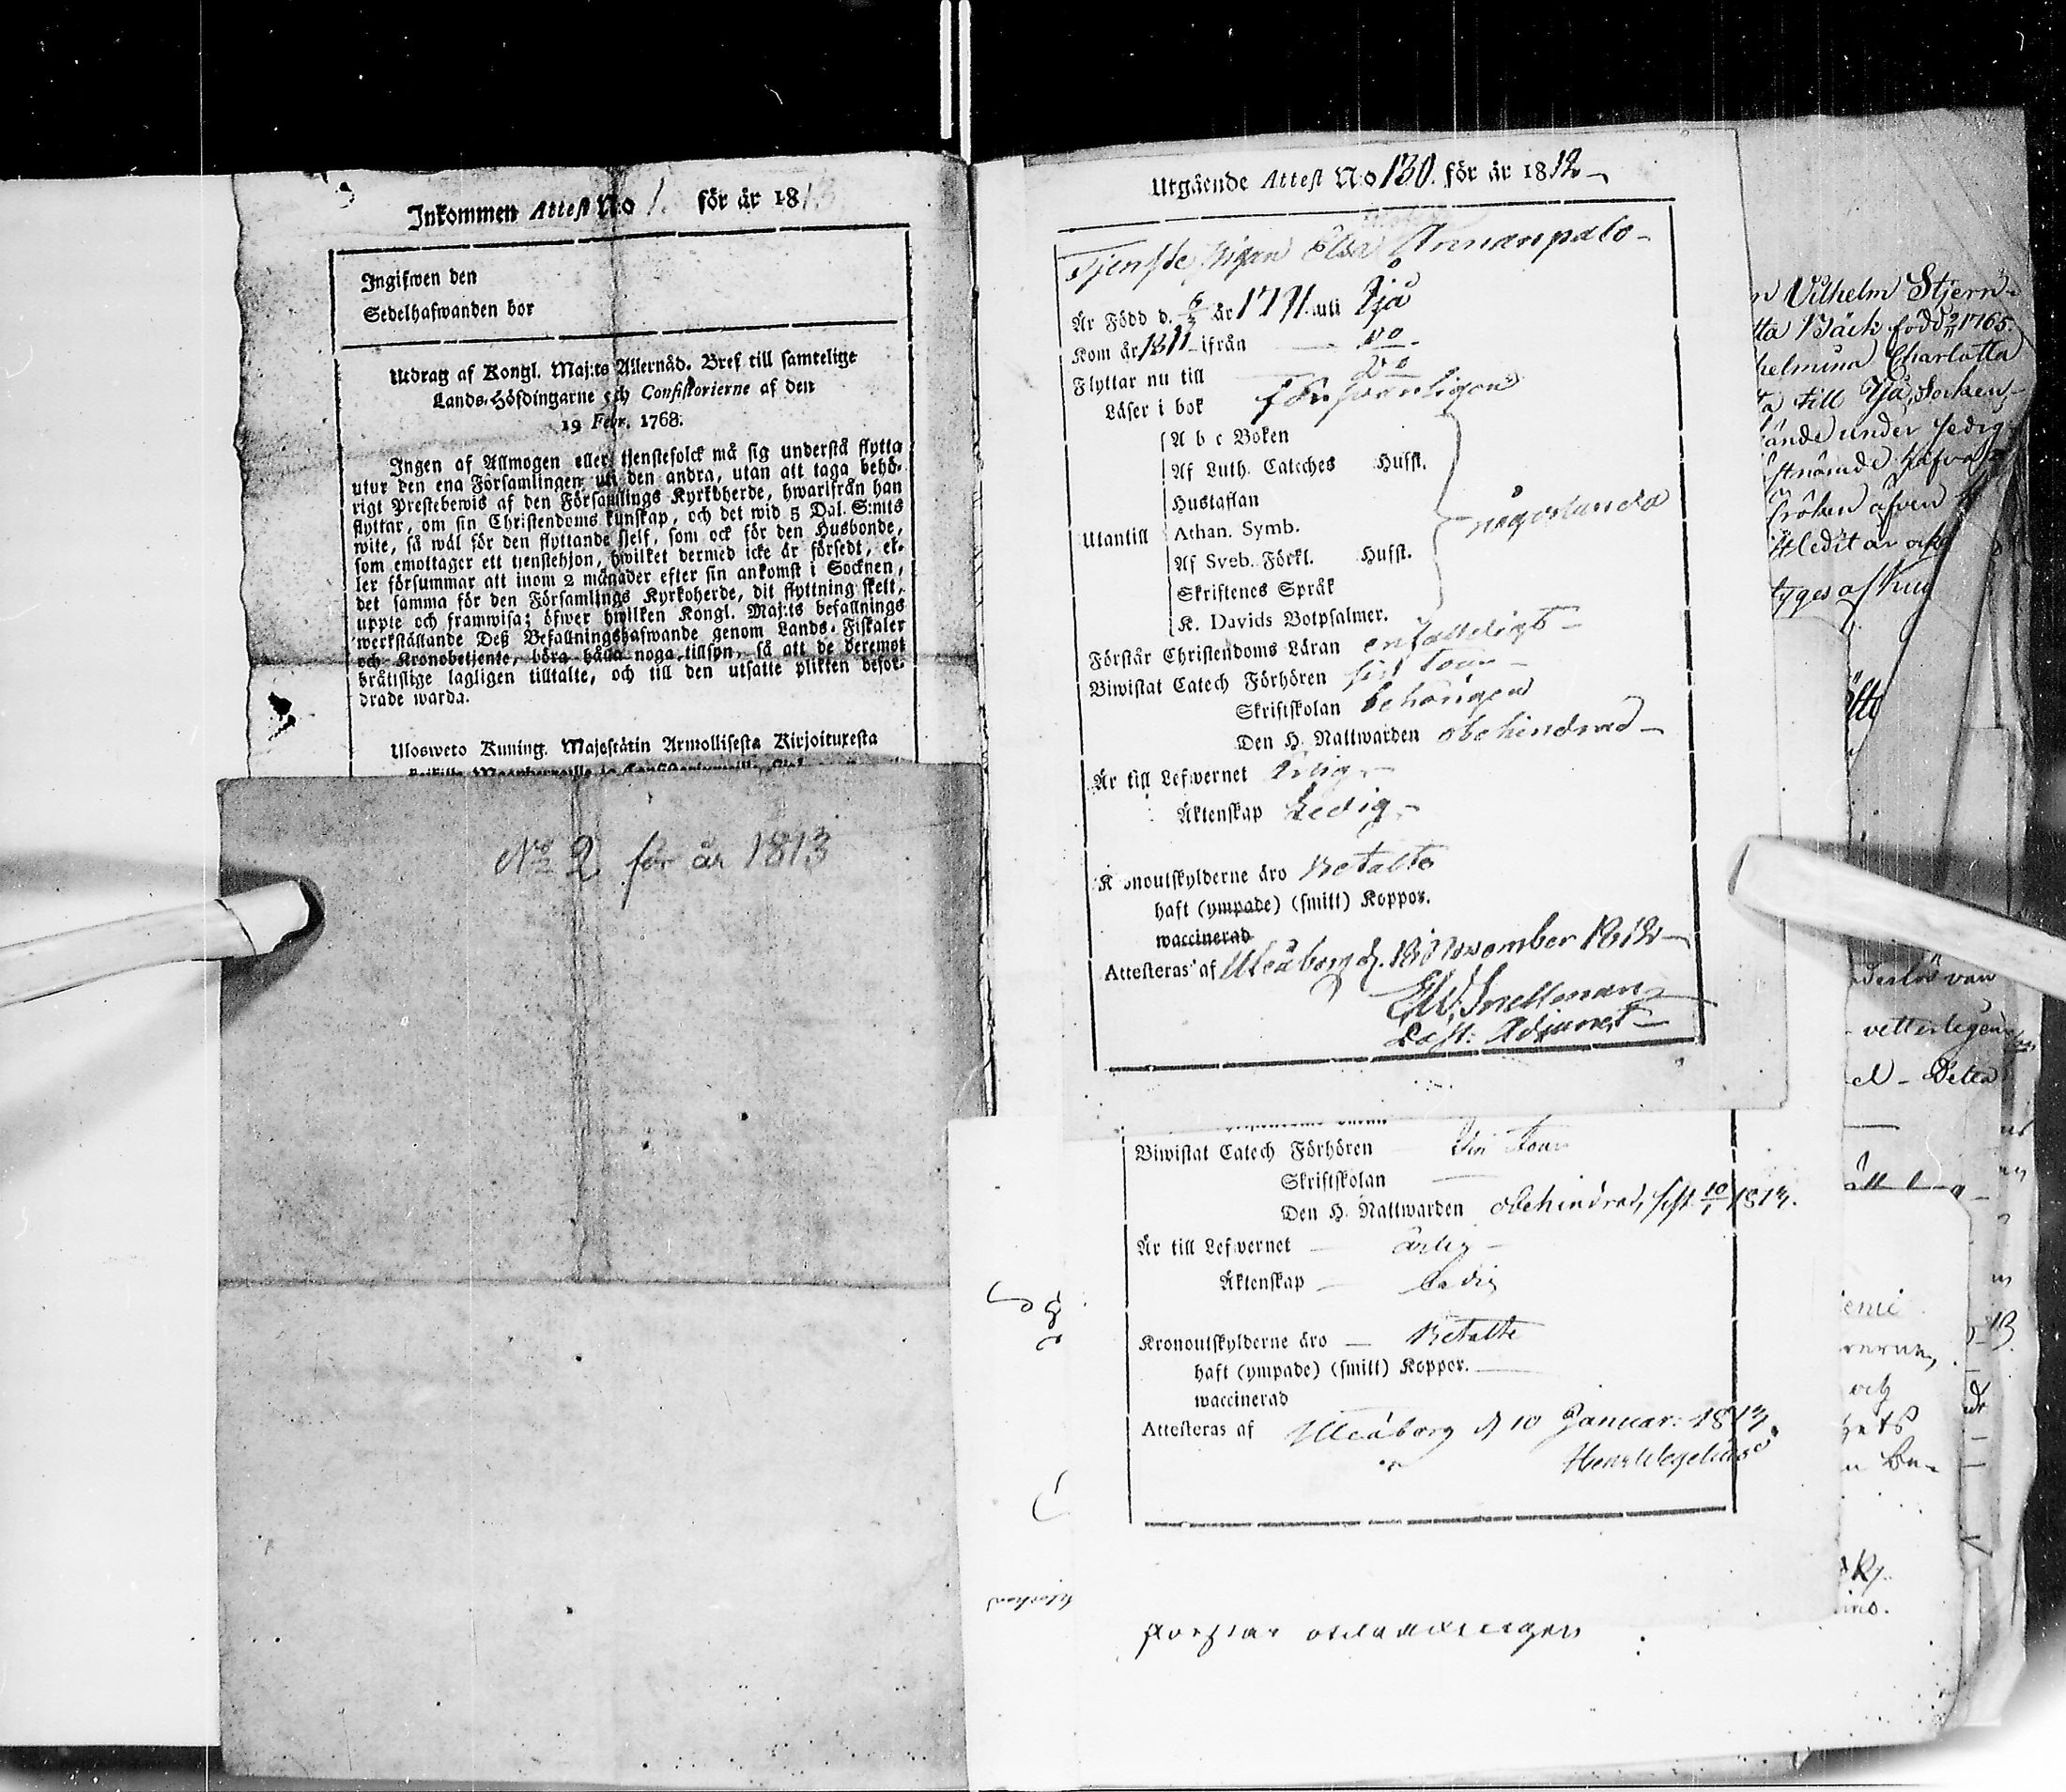 Inkommen Attest N:o 1. för år 1813.
Ingifwen den
Sedelhafwanden bor
Utdrag af Kongl. Maj:ts Allernåd. Bref till samtelige
Lands-Höfdingarne och Consistorierne af den
19 Febr. 1768.
Ingen af Allmogen eller tjenstefolck må sig understå flytta
utur den ena Församlingen uti den andra, utan att taga behö-
rigt Prestebewis af den Församlings Kyrkoherde, hwarifrån han
flyttar, om sin Christendoms kunskap, och det wid 5 Dal. S:mts
wite, så wäl för den flyttande sjelf, som ock för den Husbonde,
som emottager ett tjenstehjon, hwilket dermed icke är försedt, el-
ler försummar att inom 2 månader efter sin ankomst i Socknen,
det samma för den Församlings Kyrkoherde, dit flyttning skett,
uppte och framwisa; öfwer hwilken Kongl. Maj:ts befallnings
werkställande Deß Befallningshafwande genom Lands-Fiskaler
och Kronobetjente, böra hålla noga tillsyn, så att de deremot
bråtislige lagligen tilltalte, och till den utsatte plikten befor-
drade warda.
Ulosweto Kuning. Majestätin Armollisesta Kirjoituxesta
No 2 för år 1813
Utgående Attest N:o 130. för år 1812
Tjenste Pigan Elsa Annanpalo
Är Född d. 6/3 år 1791 uti Ijå
Kom år 1811 ifrån Do
Flyttar nu till Do
Läser i bok försvarligen
A b c Boken
Af Luth. Catches Husfl.
Hustaflan
Utantill Athan. Symb.
någorlunda
Af Sveb. Förkl. Husfl.
Skriftenes Språk
K. Davids Botpsalmer.
Förstår Christendoms Läran enfalleligt
Biwistat Catech Förhören sin tour
Skriftskolan behörigen
Den H. Nattwarden obehindrad
Är till Lefwernet Ärlig
Äktenskap Ledig
Kronoutskylderne äro Betalte
haft (ympade) (smitt) Koppor.
waccinerad
Attesteras af Uleåborg d. 18 November 1812
Snellman
Past: Adjunct
Biwistat Catech Förhören sin tour
Skriftskolan
Den H. Nattwarden obehindrad, sist 10/1 1813.
Är till Lefwernet ärlig
Äktenskap ledig
Kronoutskylderne äro Betalte
haft (ympade) (smitt) Koppor.
waccinerad
Attesteras af Uleåborg d 10 Januar: 1813
Henr Wegelius
n Vilhelm Stjern-
tta Bäck född 2/11 1765.
helmina Charlotta
ta till Ijå Socken,
ände under sedig
Fröken äfven
tyges af
vetterligen
Detta